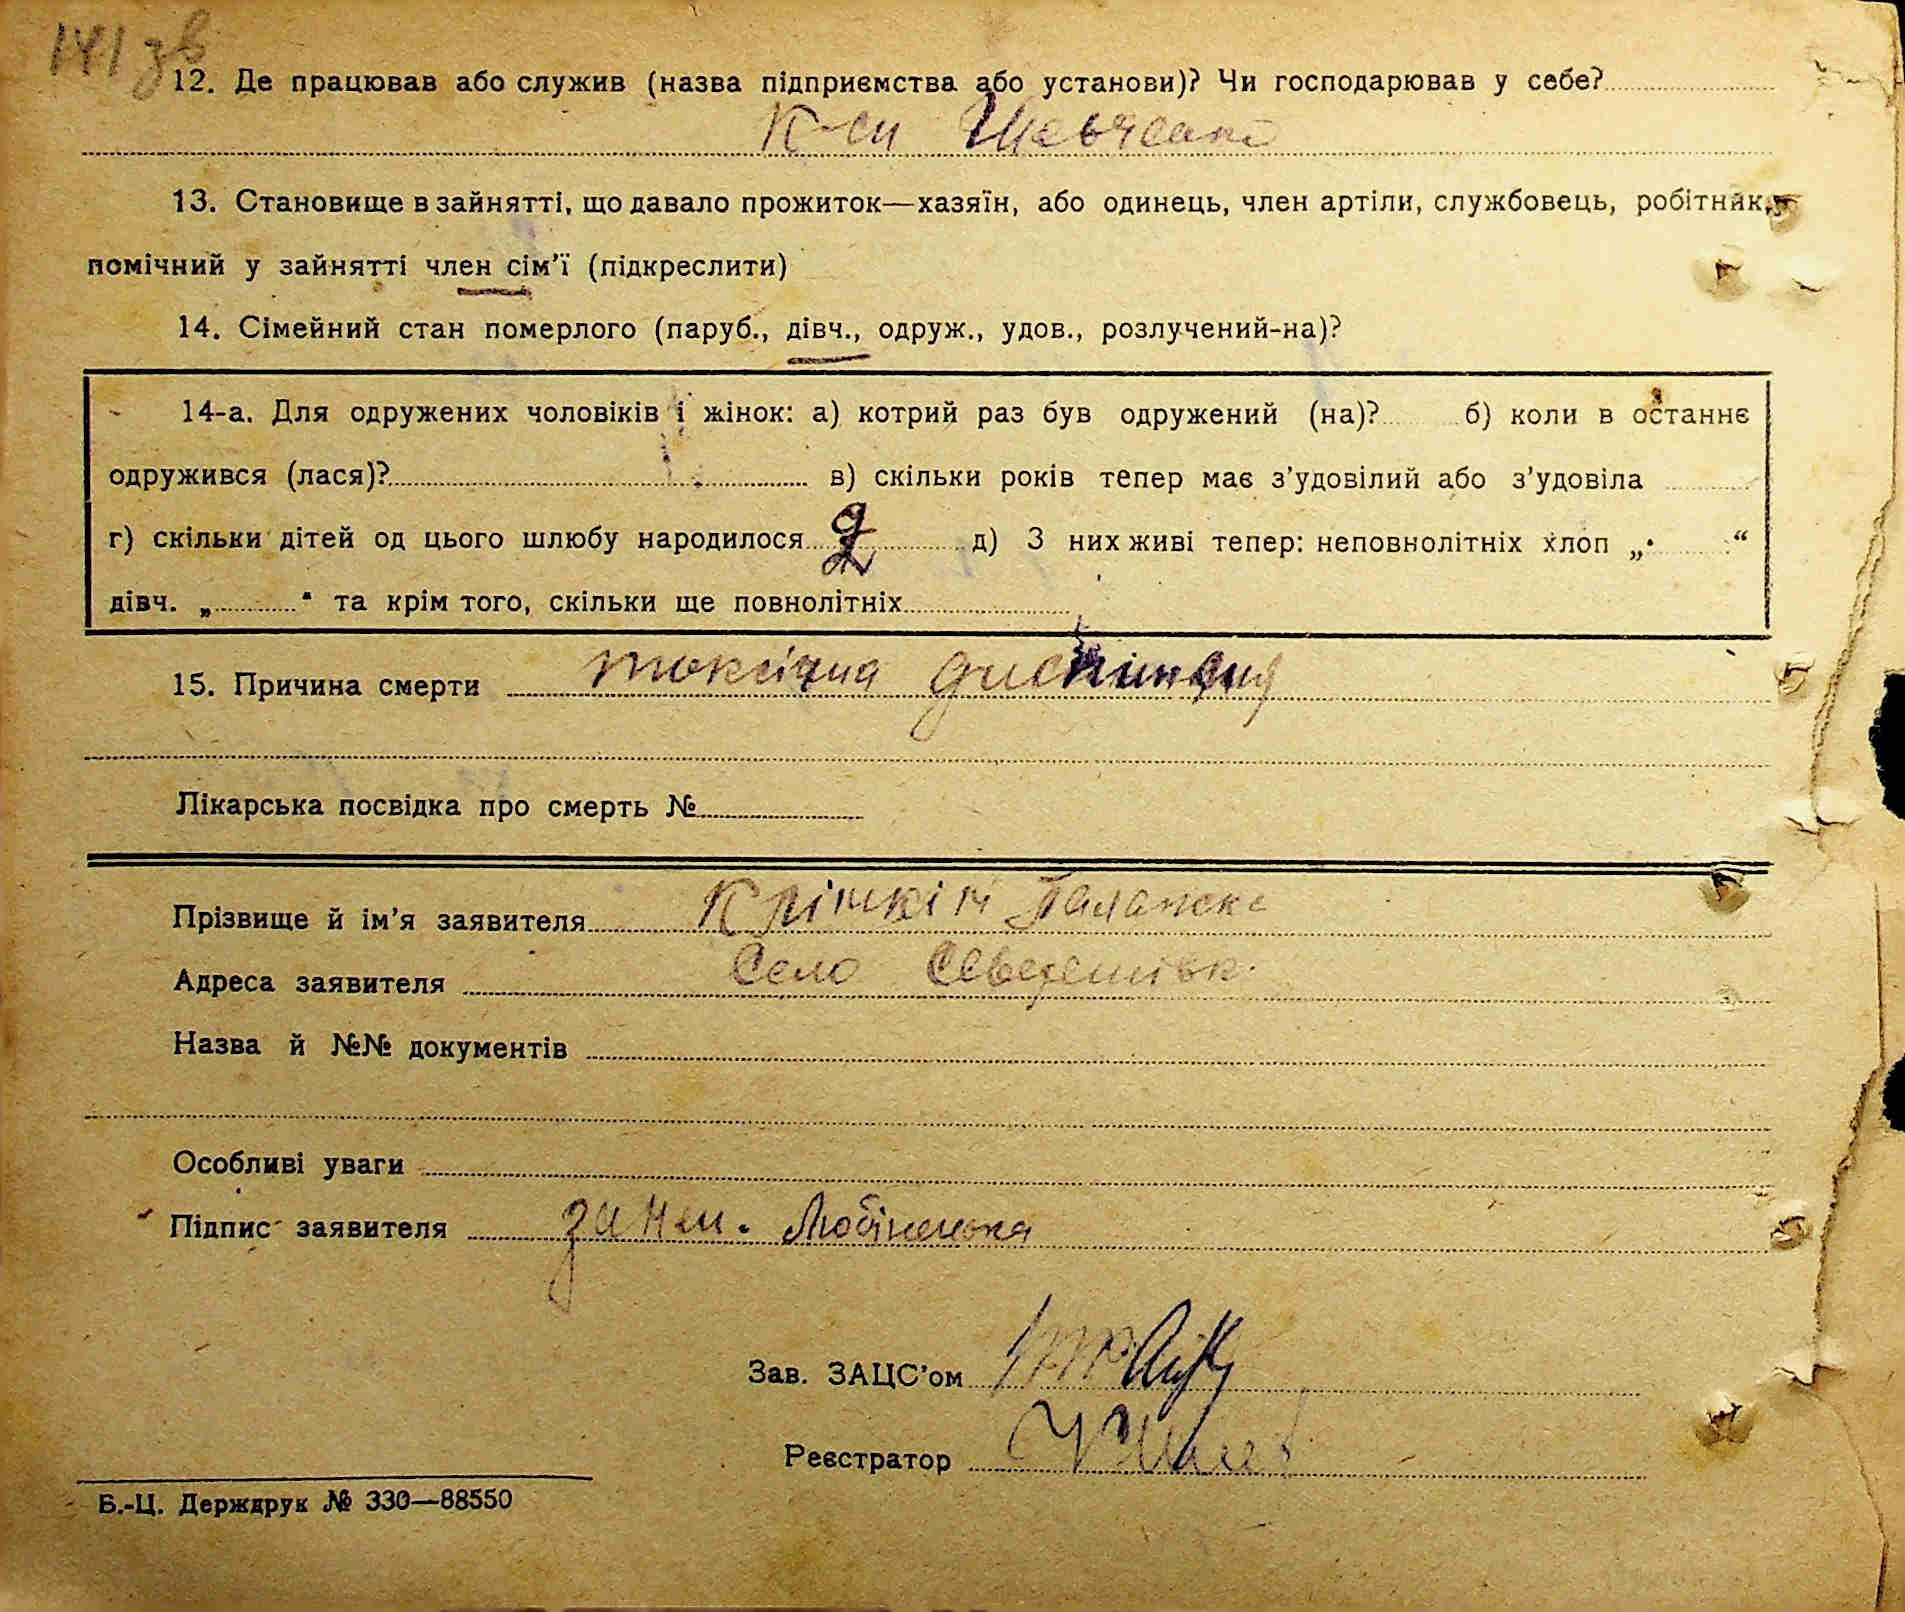 141 зв
12. Де працював або служив (назва підприємства або установи)? Чи господарював у себе?
К-сп Шевченко
13. Становище в зайнятті, що давало прожиток—хазяїн, або одинець, член артіли, службовець, робітник,
помічний у зайнятті член сім’ї (підкреслити)
14. Сімейний стан померлого (паруб., дівч., одруж., удов., розлучений-на)?
14-а. Для одружених чоловіків і жінок: а) котрий раз був одружений (на)? б) коли в останнє
одружився (лася)? в) скільки років тепер має з’удовілий або з’удовіла
г) скільки дітей од цього шлюбу народилося д) З них живі тепер: неповнолітніх хлоп „ “
дівч. „ “ та крім того, скільки ще повнолітніх
15. Причина смерти токсічна
Лікарська посвідка про смерть №
Прізвище й ім’я заявителя
Адреса заявителя Село
Назва й №№ документів
Особливі уваги
Підпис заявителя за неп.
Зав. ЗАЦС’ом
Реєстратор
Б.-Ц. Держдрук № 330—88550